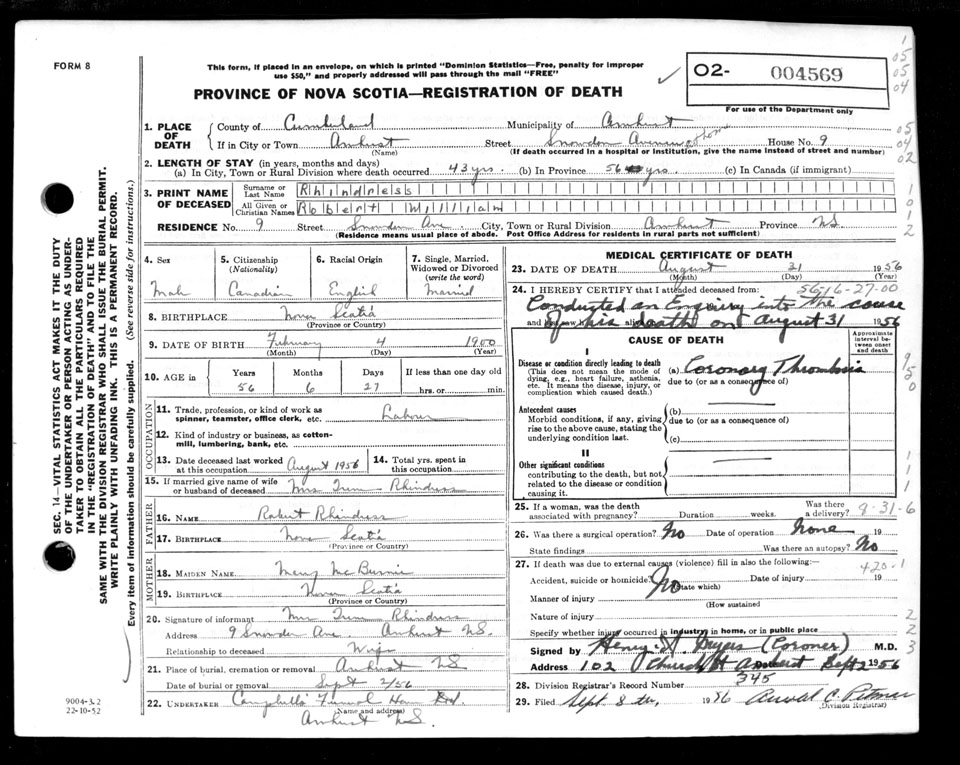 FORM 8
This form, if placed in an envelope, on which is printed "Dominion Statistics—Free, penalty for improper
use $50," and properly addressed will pass through the mail "FREE"
02- 004569
For use of the Department only
PROVINCE OF NOVA SCOTIA—REGISTRATION OF DEATH
1. PLACE OF DEATH
County of Cumberland Municipality of Amherst
If in City or Town Amherst Street Snowden House No. 9
(Name) (If death occurred in a hospital or institution, give the name instead of street and number)
2. LENGTH OF STAY (in years, months and days)
(a) In City, Town or Rural Division where death occurred 43 yrs. (b) In Province 56 yrs (c) In Canada (if immigrant)
3. PRINT NAME OF DECEASED
Surname or Last Name Rhindress
All Given or Christian Names Robert William
RESIDENCE No. 9 Street Snowden Ave. City, Town or Rural Division Amherst Province N.S.
(Residence means usual place of abode. Post Office Address for residents in rural parts not sufficient)
4. Sex
Male
5. Citizenship (Nationality)
Canadian
6. Racial Origin
English
7. Single, Married, Widowed or Divorced (write the word)
Married
8. BIRTHPLACE Nova Scotia
(Province or Country)
9. DATE OF BIRTH February 4 1900
(Month) (Day) (Year)
10. AGE in Years Months Days If less than one day old
56 6 27 hrs. or min.
OCCUPATION
11. Trade, profession, or kind of work as spinner, teamster, office clerk, etc. Labour
12. Kind of industry or business, as cotton-mill, lumbering, bank, etc.
13. Date deceased last worked at this occupation August 1956
14. Total yrs. spent in this occupation
15. If married give name of wife or husband of deceased Mrs Rhindress
FATHER
16. NAME Robert Rhindress
17. BIRTHPLACE Nova Scotia
(Province or Country)
MOTHER
18. MAIDEN NAME Mary McBurnie
19. BIRTHPLACE Nova Scotia
(Province or Country)
20. Signature of informant Mrs Rhindress
Address 9 Snowden Ave. Amherst N.S.
Relationship to deceased Wife
21. Place of burial, cremation or removal Amherst NS
Date of burial or removal Sept 2/56
22. UNDERTAKER Campbells Funeral Home Ltd
(Name and address)
Amherst N.S.
MEDICAL CERTIFICATE OF DEATH
23. DATE OF DEATH August 31 1956
(Month) (Day) (Year)
24. I HEREBY CERTIFY that I attended deceased from:
56-16-27-00
Conducted an Enquiry into the cause
of his death on August 31 1956
CAUSE OF DEATH
Approximate interval between onset and death
I
Disease or condition directly leading to death
(This does not mean the mode of dying, e.g., heart failure, asthenia, etc. It means the disease, injury, or complication which caused death.)
(a) Coronary Thrombosis
due to (or as a consequence of)
Antecedent causes
Morbid conditions, if any, giving rise to the above cause, stating the underlying condition last.
(b)
due to (or as a consequence of)
(c)
II
Other significant conditions
contributing to the death, but not related to the disease or condition causing it.
25. If a woman, was the death associated with pregnancy? Duration weeks. Was there a delivery?
8-31-6
26. Was there a surgical operation? No Date of operation None 19
State findings Was there an autopsy? No
27. If death was due to external causes (violence) fill in also the following:
420-1
Accident, suicide or homicide? No (State which) Date of injury 19
Manner of injury
(How sustained)
Nature of injury
Specify whether injury occurred in industry, in home, or in public place
Signed by Henry (Coroner) M.D.
Address 102 Church St Amherst Sept 2 1956
28. Division Registrar's Record Number 345
29. Filed Sept. 8 th, 1956
(Division Registrar)
SEC. 14—VITAL STATISTICS ACT MAKES IT THE DUTY
OF THE UNDERTAKER OR PERSON ACTING AS UNDER-
TAKER TO OBTAIN ALL THE PARTICULARS REQUIRED
IN THE "REGISTRATION OF DEATH" AND TO FILE THE
SAME WITH THE DIVISION REGISTRAR WHO SHALL ISSUE THE BURIAL PERMIT.
WRITE PLAINLY WITH UNFADING INK. THIS IS A PERMANENT RECORD.
Every item of information should be carefully supplied. (See reverse side for instructions.)
9004-3.2
22-10-52